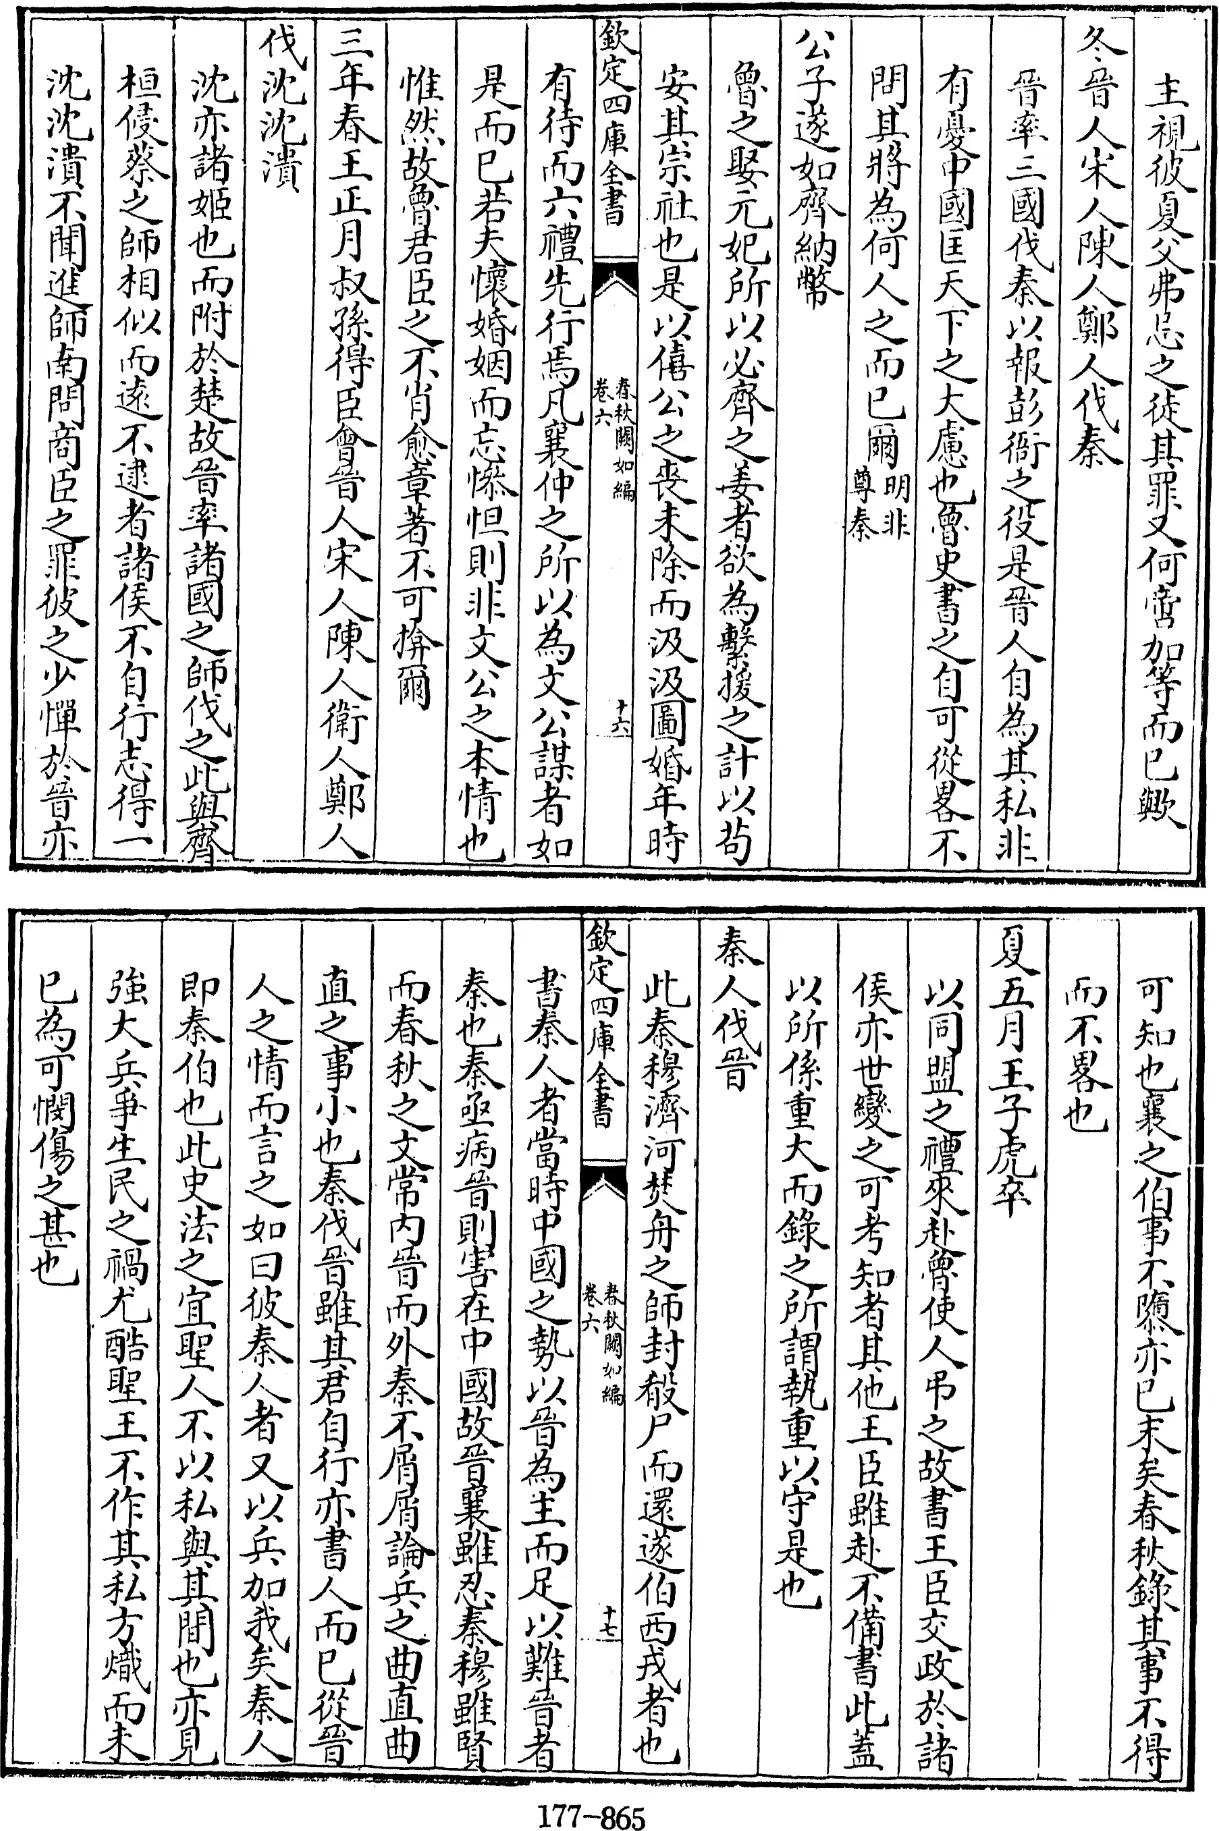 主視彼夏父弗忌之徒其罪又何啻加等而已歟
冬晉人宋人陳人鄭人伐秦
晉率三國伐秦以報彭衙之役是晉人自為其私非
有憂中國匡天下之大慮也魯史書之自可從畧不
問其將為何人之而已爾明非尊秦
公子遂如齊納幣
魯之娶元妃所以必齊之姜者欲為繫援之計以苟
安其宗社也是以僖公之喪未除而汲汲圖婚年時
欽定四庫全書
春秋闕如編
卷六
十六
有待而六禮先行焉凡襄仲之所以為文公謀者如
是而已若夫懷婚姻而忘慘怛則非文公之本情也
惟然故魯君臣之不肖愈章著不可揜爾
三年春王正月叔孫得臣會晉人宋人陳人衛人鄭人
伐沈沈潰
沈亦諸姬也而附於楚故晉率諸國之師伐之此與齊
桓侵蔡之師相似而遠不逮者諸侯不自行志得一
沈沈潰不聞進師南問商臣之罪彼之少憚於晉亦
可知也襄之伯事不隳亦已末矣春秋錄其事不得
而不畧也
夏五月王子虎卒
以同盟之禮來赴魯使人弔之故書王臣交政於諸
侯亦世變之可考知者其他王臣雖赴不備書此蓋
以所係重大而錄之所謂執重以守是也
秦人伐晉
此秦穆濟河焚舟之師封殽尸而還遂伯西戎者也
欽定四庫全書
春秋闕如編
卷六
十七
書秦人者當時中國之勢以晉為主而足以難晉者
秦也秦亟病晉則害在中國故晉襄雖忍秦穆雖賢
而春秋之文常內晉而外秦不屑屑論兵之曲直曲
直之事小也秦伐晉雖其君自行亦書人而已從晉
人之情而言之如曰彼秦人者又以兵加我矣秦人
即秦伯也此史法之宜聖人不以私與其間也亦見
強大兵爭生民之禍尤酷聖王不作其私方熾而未
已為可憫傷之甚也
177-865